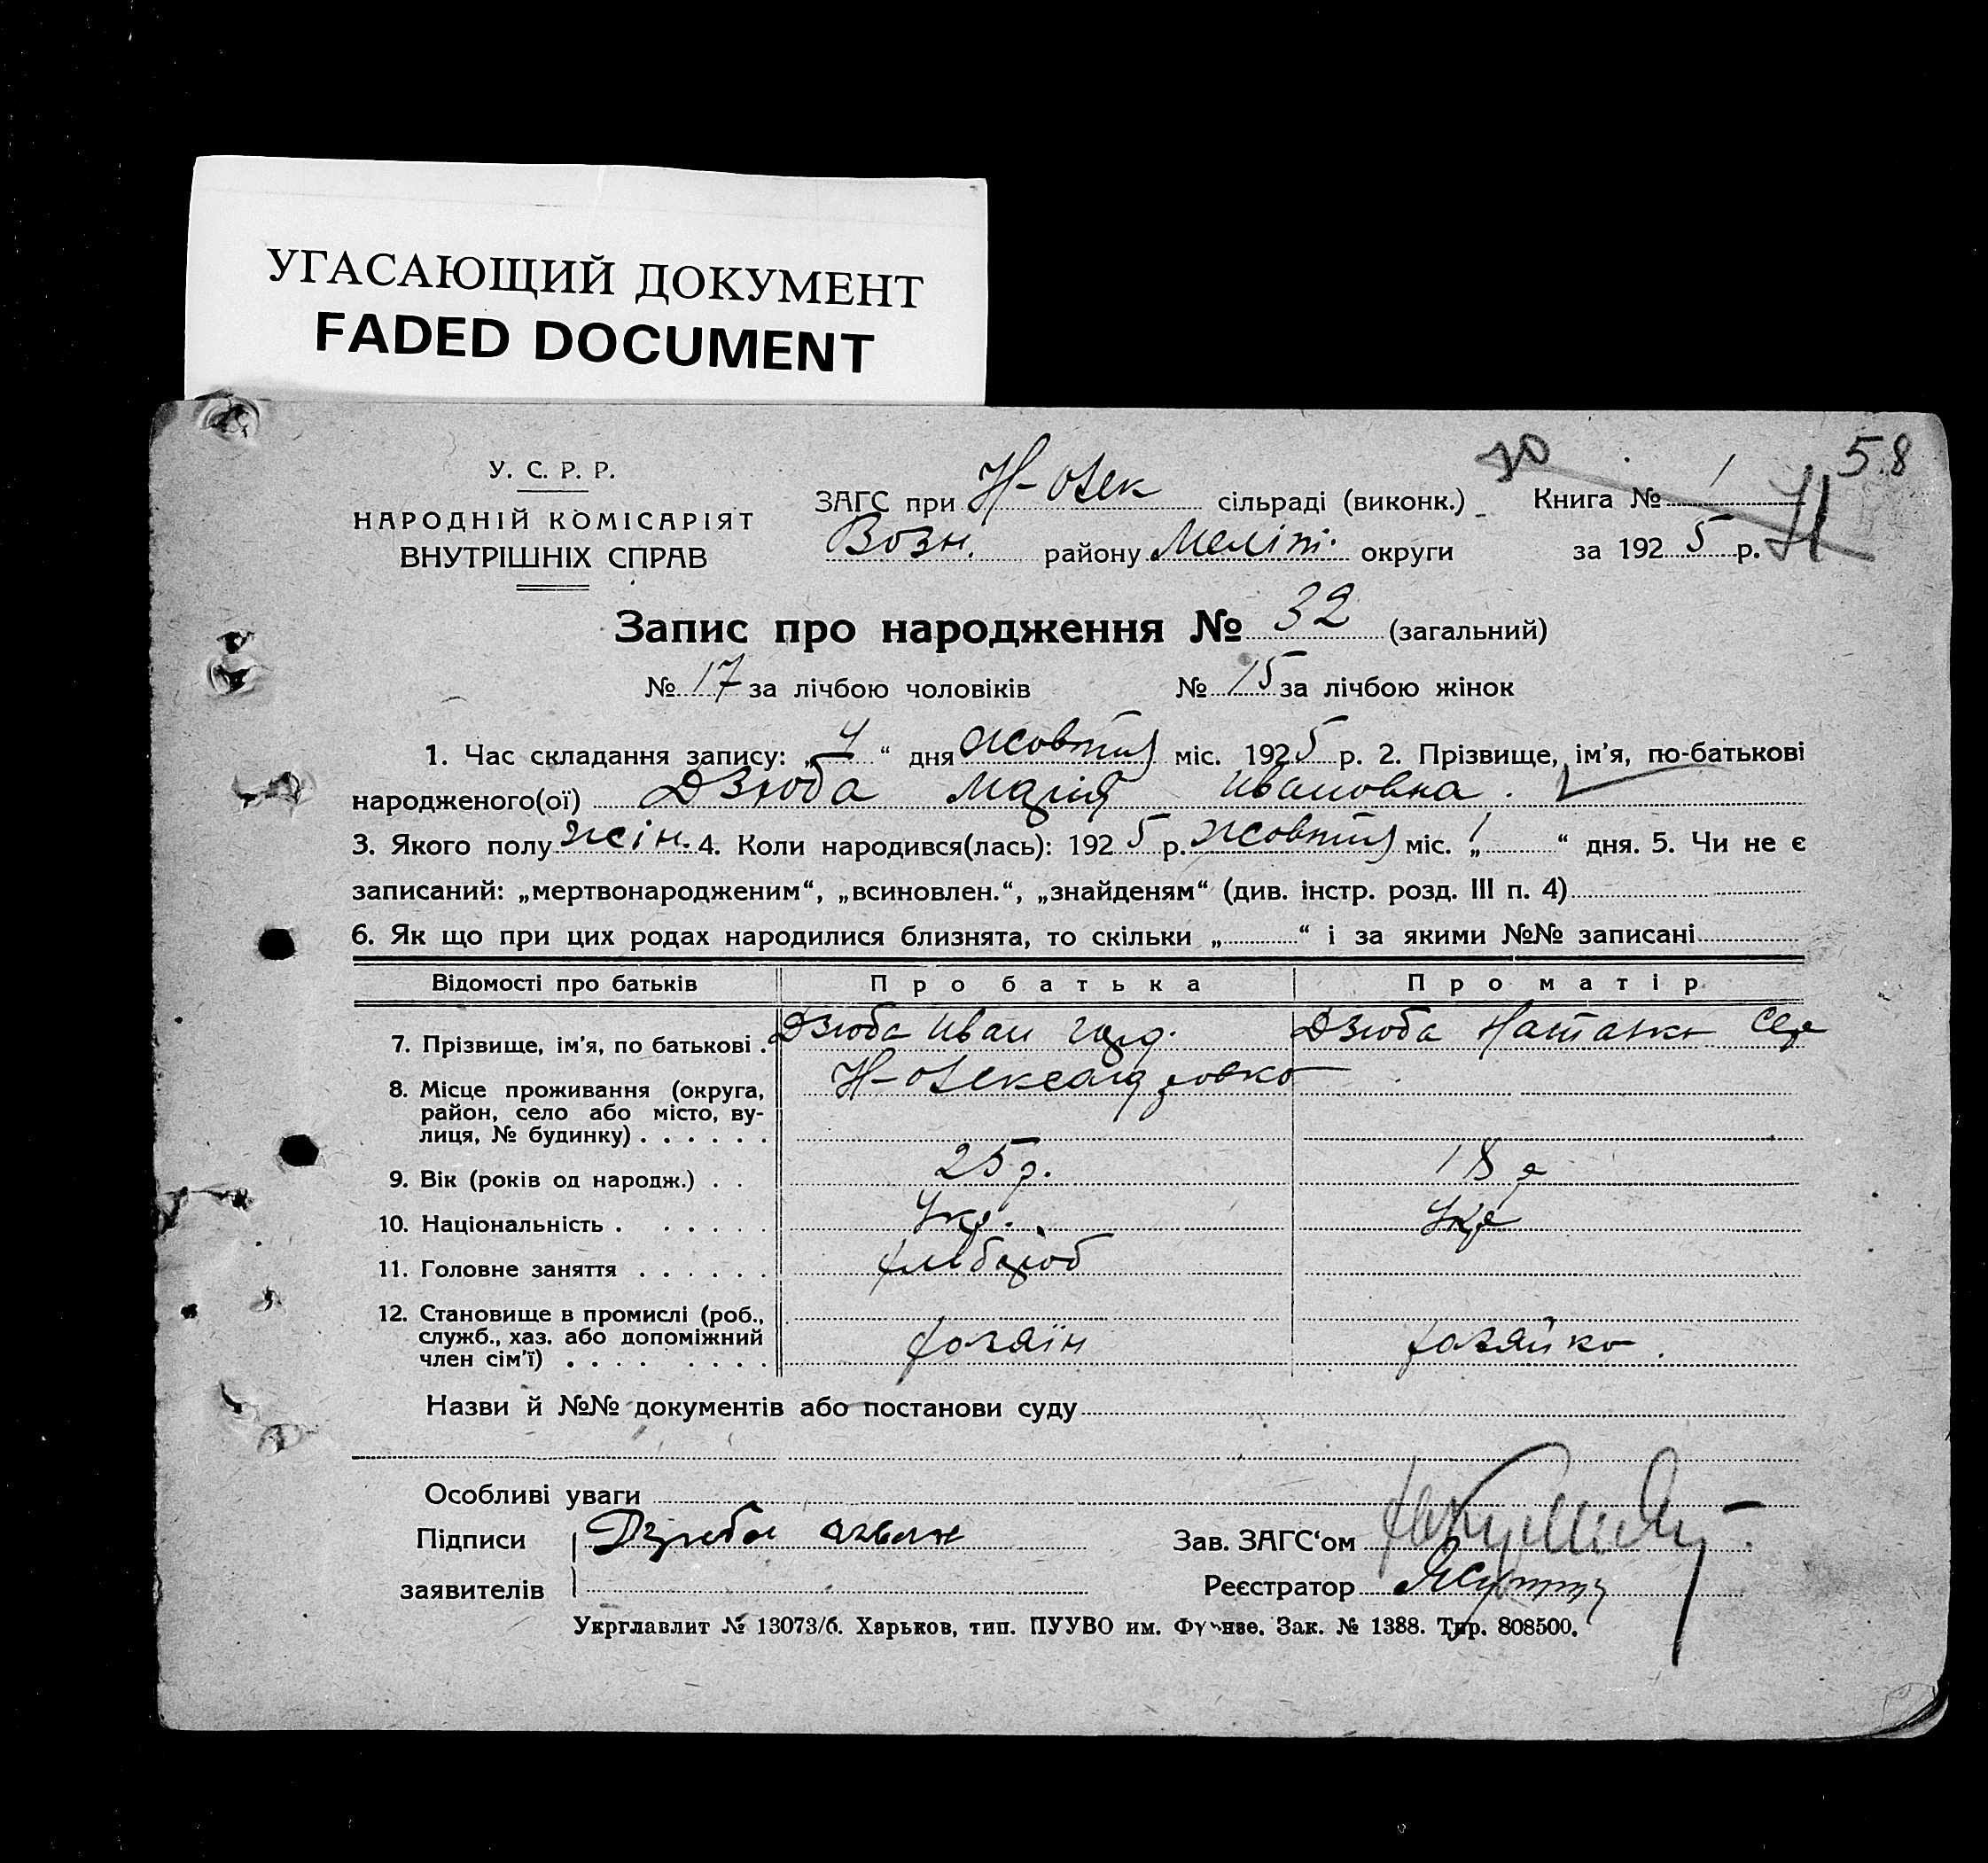 УГАСАЮЩИЙ ДОКУМЕНТ
FADED DOCUMENT
58
У. С. Р. Р.
НАРОДНІЙ КОМІСАРІЯТ
ВНУТРІШНІХ СПРАВ
ЗАГС при Н-Олек сільраді (виконк.)
Возн. району Меліт. округи
Книга № 1
за 1925 р.
71
Запис про народження № 32 (загальний)
№ 17 за лічбою чоловіків № 15 за лічбою жінок
1. Час складання запису: „4“ дня жовтня міс. 1925 р. 2. Прізвище, ім’я, по-батькові
народженого(ої) Дзюба Марія Ивановна.
3. Якого полу жін. 4. Коли народився(лась): 1925 р. жовтня міс. „1“ дня. 5. Чи не є
записаний: „мертвонародженим“, „всиновлен.“, „знайденям“ (див. інстр. розд. III п. 4)
6. Як що при цих родах народилися близнята, то скільки „ “ і за якими №№ записані
Відомості про батьків Про батька Про матір
7. Прізвище, ім’я, по батькові . Дзюба Иван Дзюба
8. Місце проживання (округа, Н-Олександровка
район, село або місто, ву-
лиця, № будинку) . . . . . .
9. Вік (років од народж.) . . 25 р. 18 р
10. Національність . . . . . Укр. Укр
11. Головне заняття . . . . . . хлібороб
12. Становище в промислі (роб.,
служб., хаз. або допоміжний хозяїн хозяйка.
член сім’ї) . . . . . . . .
Назви й №№ документів або постанови суду
Особливі уваги
Підписи Дзюба Зав. ЗАГС‘ом
заявителів Реєстратор
Укрглавлит № 13073/б. Харьков, тип. ПУУВО им. Фрунзе. Зак. № 1388. Тир. 808500.